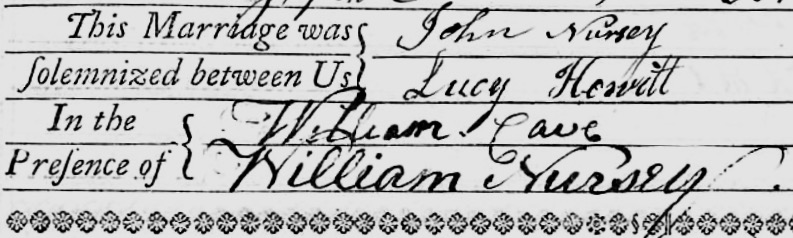 This Marriage was John Nursey
ſolemnized between Us Lucy Howitt
In the William Cave
Preſence of William Nursey